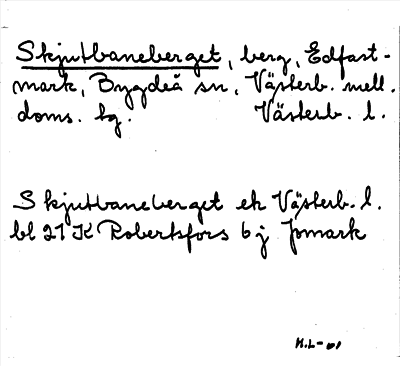 Skjutbaneberget, berg, Edfast-
mark, Bygdeå sn, Västerb. mell.
doms. hg. Västerb. l.
Skjutbaneberget ek Västerb. l.
bl 21 K Robertsfors 6 j